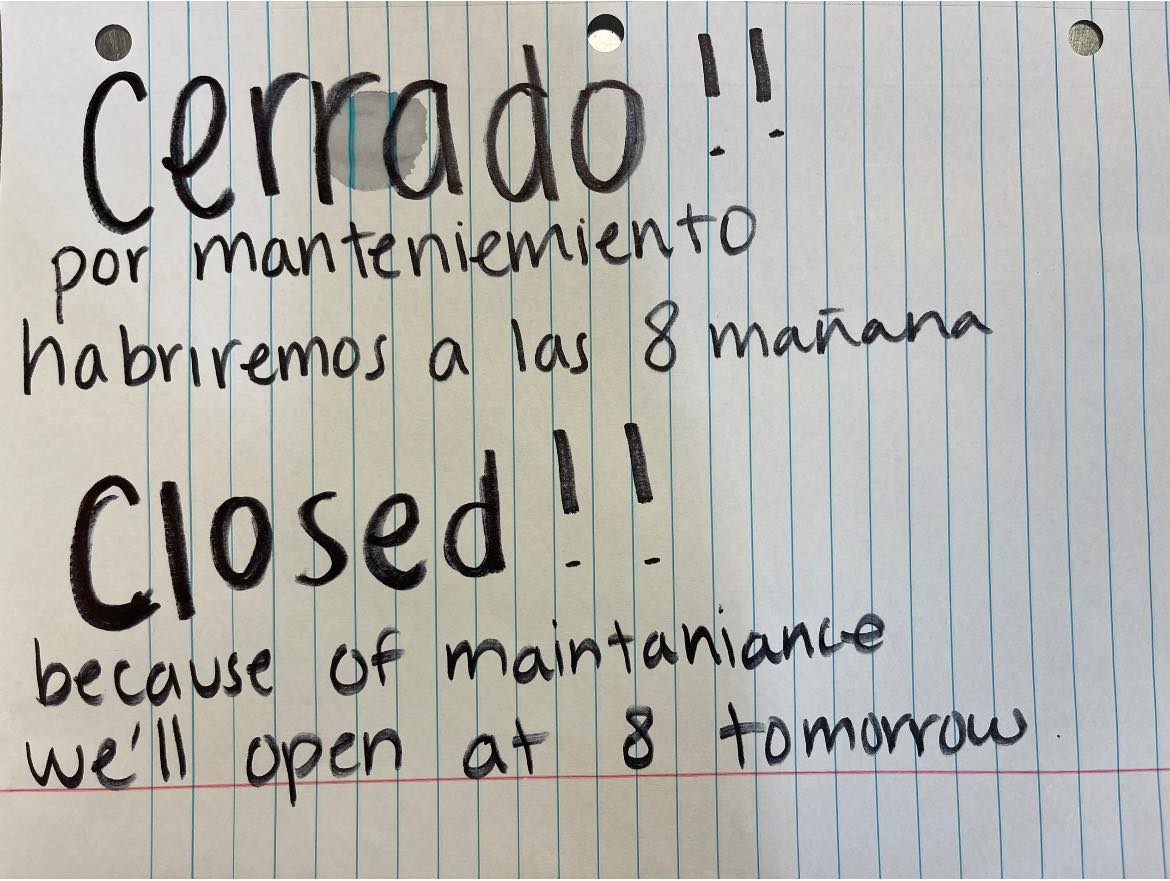 Cerrado!!
por manteniemiento
habriremos a las 8 mañana
Closed!!
because of maintaniance
we'll open at 8 tomorrow.